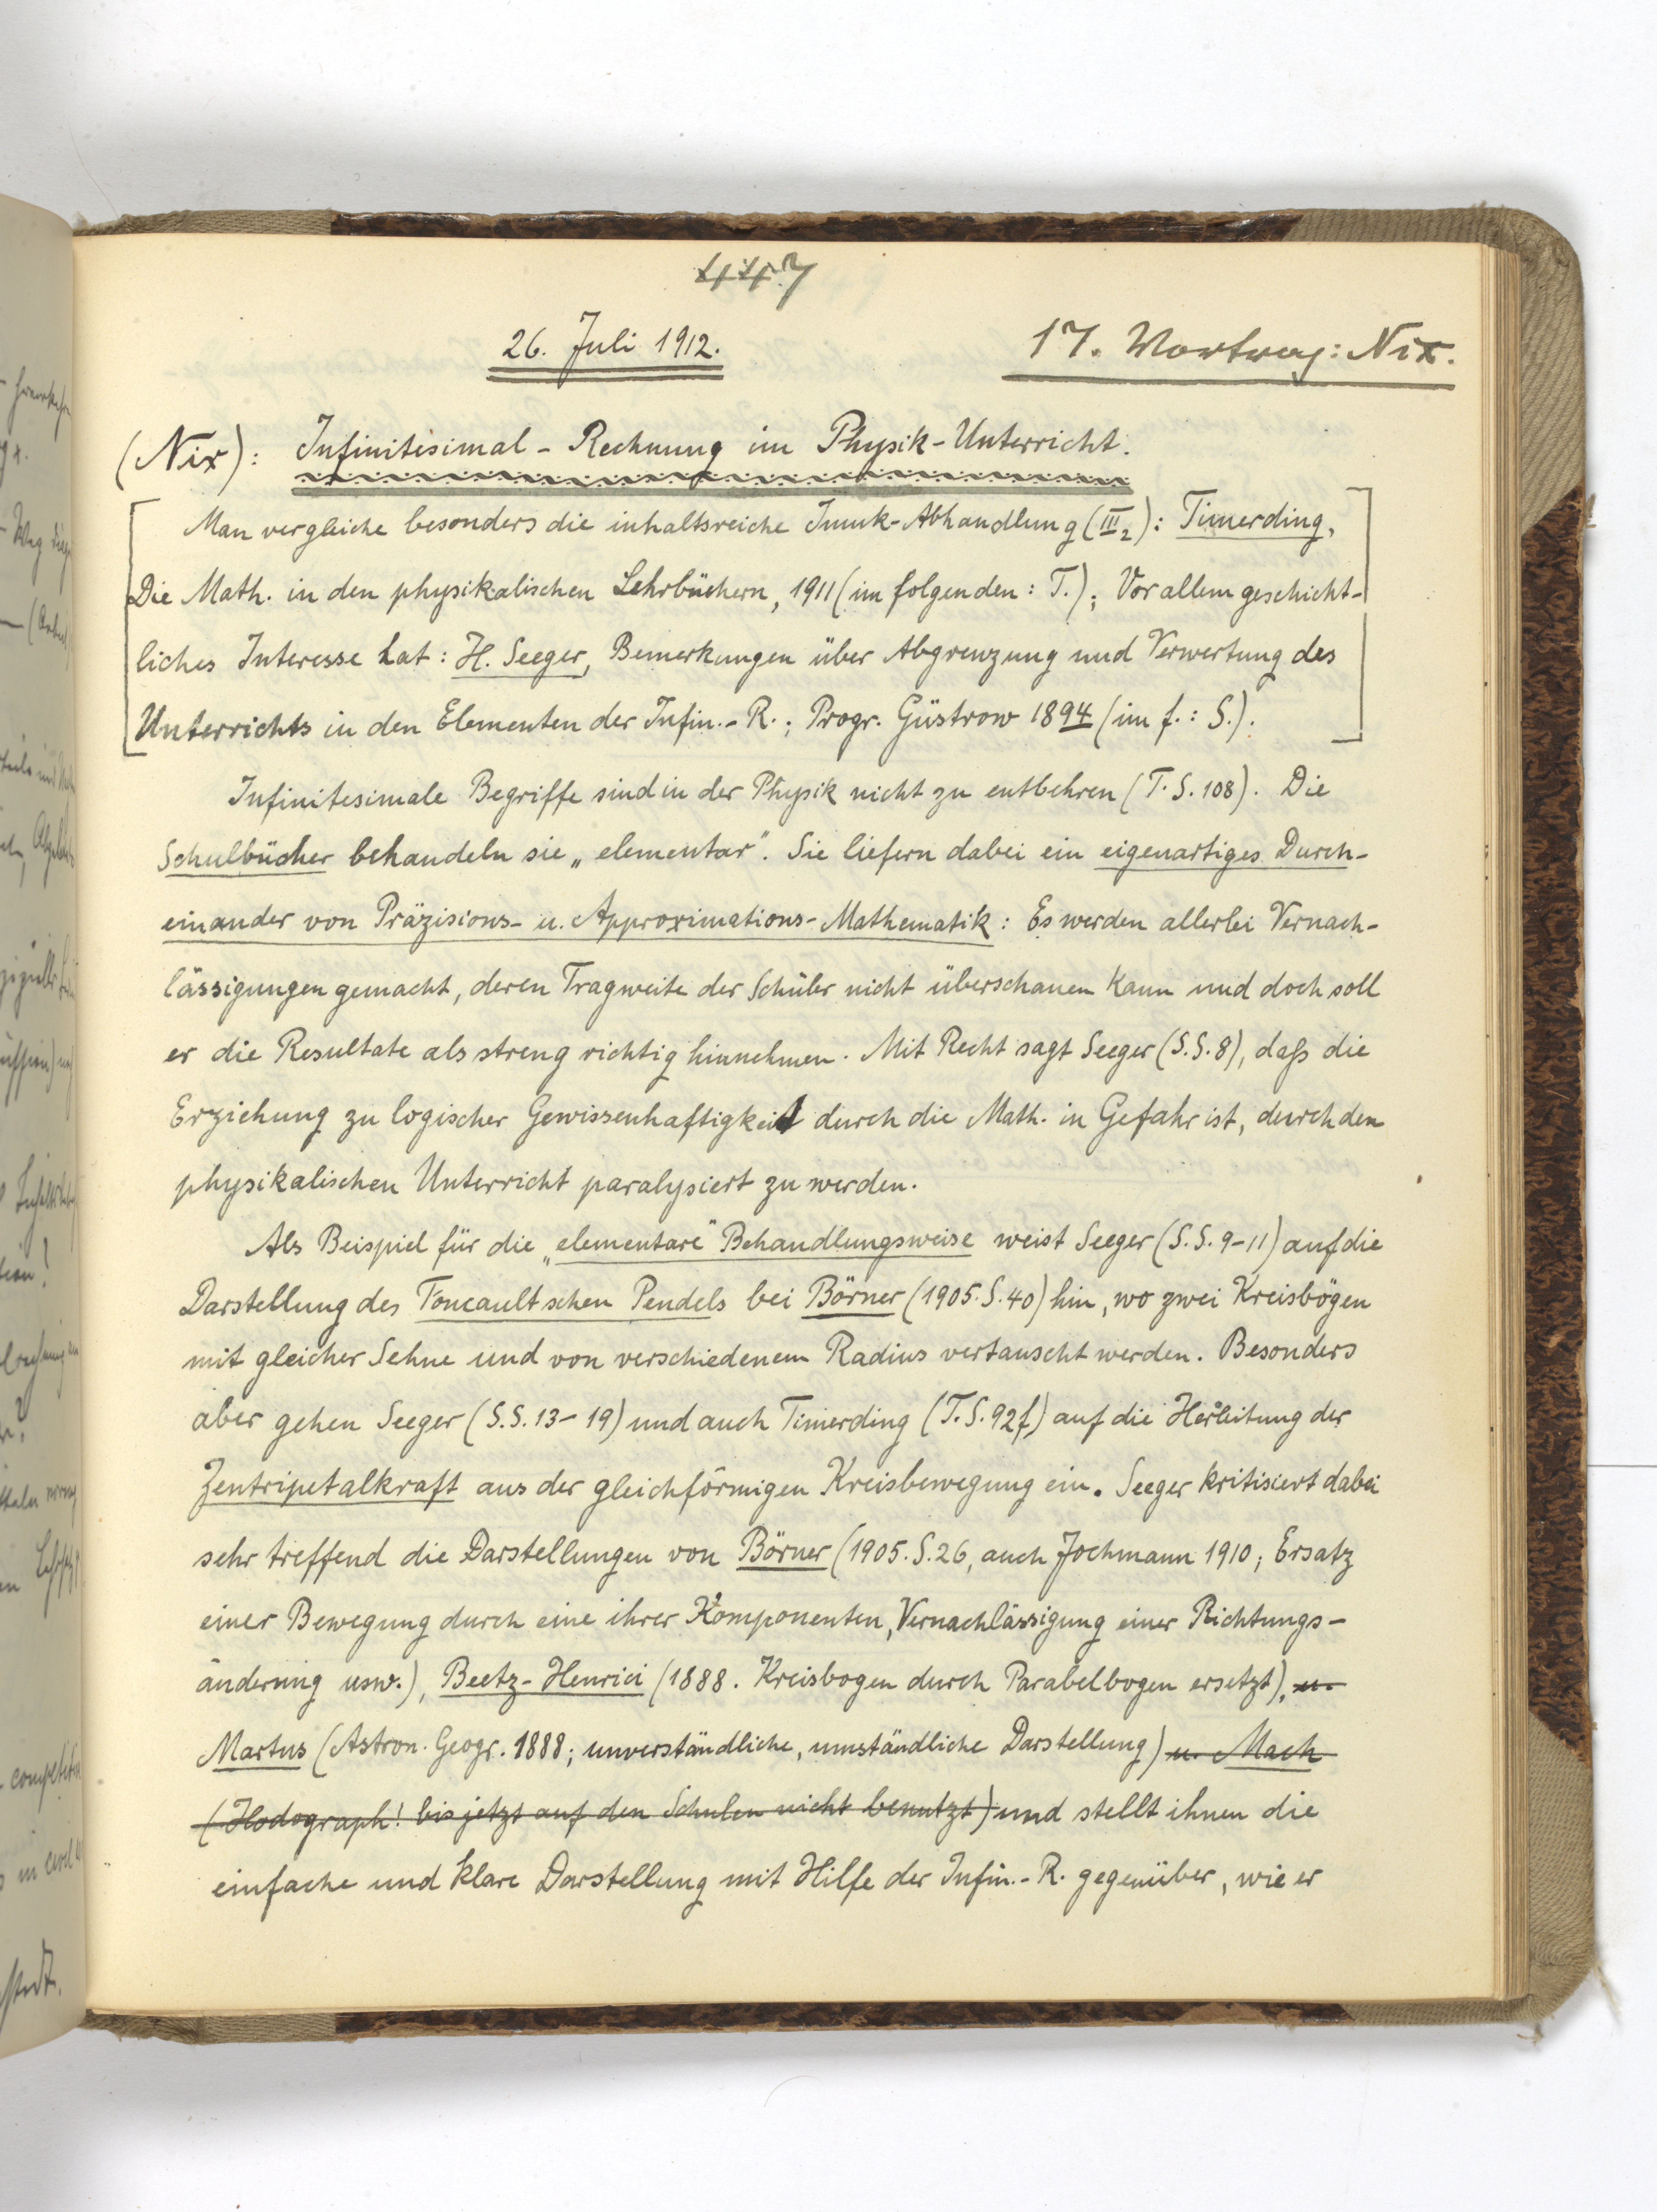 447
26. Juli 1912.
17. Vortrag: Nix.
(Nix): Infinitesimal-Rechnung im Physik-Unterricht.
Man vergleiche besonders die inhaltsreiche Imuk-Abhandlung (III₂): Timerding,
Die Math. in den physikalischen Lehrbüchern, 1911 (im folgenden: T.); Vor allem geschicht-
liches Interesse hat: H. Seeger, Bemerkungen über Abgrenzung und Verwertung des
Unterrichts in den Elementen der Infin.-R.; Progr. Güstrow 1894 (im f.: S.).
Infinitesimale Begriffe sind in der Physik nicht zu entbehren (T. S. 108). Die
Schulbücher behandeln sie „elementar". Sie liefern dabei ein eigenartiges Durch-
einander von Präzisions- u. Approximations-Mathematik: Es werden allerlei Vernach-
lässigungen gemacht, deren Tragweite der Schüler nicht überschauen kann und doch soll
er die Resultate als streng richtig hinnehmen. Mit Recht sagt Seeger (S. S. 8), daß die
Erziehung zu logischer Gewissenhaftigkeit durch die Math. in Gefahr ist, durch den
physikalischen Unterricht paralysiert zu werden.
Als Beispiel für die „elementare" Behandlungsweise weist Seeger (S. S. 9-11) auf die
Darstellung des Foucaultschen Pendels bei Börner (1905. S. 40) hin, wo zwei Kreisbögen
mit gleicher Sehne und von verschiedenem Radius vertauscht werden. Besonders
aber gehen Seeger (S. S. 13-19) und auch Timerding (T. S. 92f) auf die Herleitung der
Zentripetalkraft aus der gleichförmigen Kreisbewegung ein. Seeger kritisiert dabei
sehr treffend die Darstellungen von Börner (1905. S. 26, auch Jochmann 1910; Ersatz
einer Bewegung durch eine ihrer Komponenten, Vernachlässigung einer Richtungs-
änderung usw.), Beetz-Henrici (1888. Kreisbogen durch Parabelbogen ersetzt), u.
Martus (Astron. Geogr. 1888; unverständliche, umständliche Darstellung) u. Mach
(Hodograph! bis jetzt auf den Schulen nicht benutzt) und stellt ihnen die
einfache und klare Darstellung mit Hilfe der Infin.-R. gegenüber, wie er